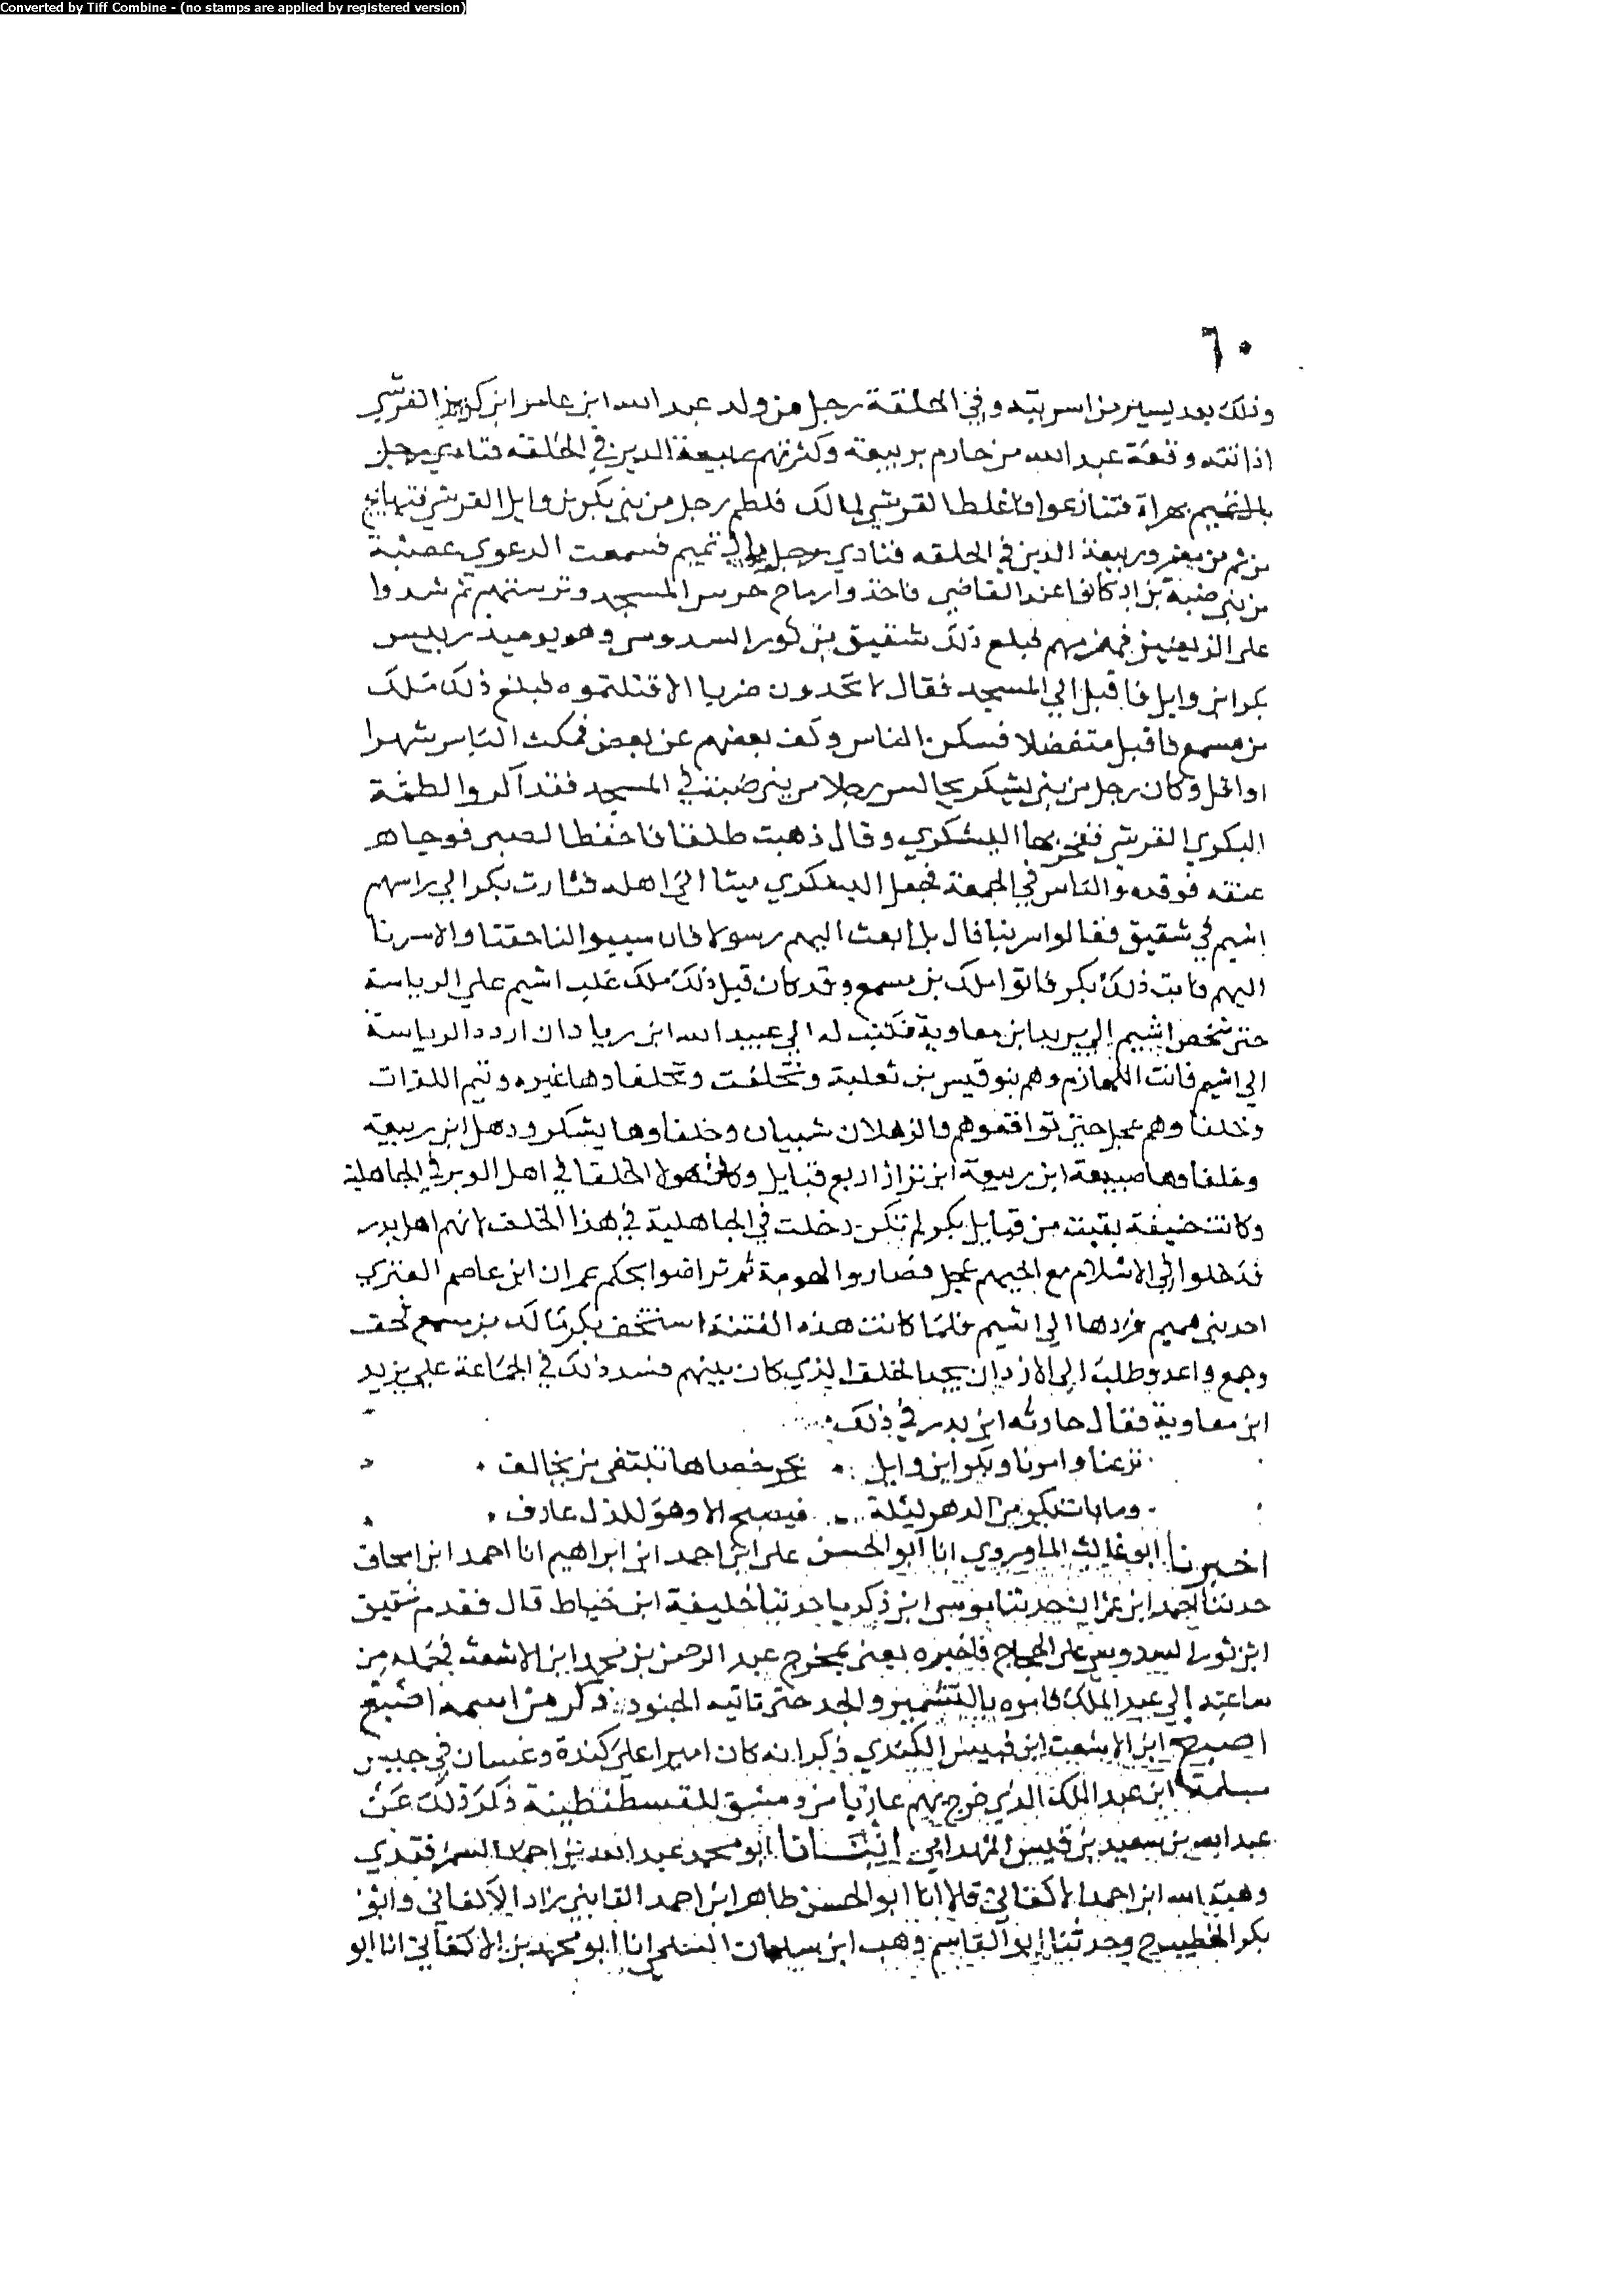 Converted by Tiff Combine - (no stamps are applied by registered version)
٦٠
وذلك بعد يسير من اسر بته وفي الحلقة رجل من ولد عبد الله ابن عامر ابن كريز القرشي
اذ اتته وقعة عبد الله من خازم بربيعة وكثرتهم ربيعة الدين في الحلقه فنادي رجل
بال تميم بهراة فتنازعوا فاغلظ القرشي لمالك فلطم رجل من بني بكر بن وايل القرشي فتهايج
من ثم من مضر وربيعة الذين في الحلقه فنادي رجل يال تميم فسمعت الدعوي عصبة
من بني ضبة بن اد كانوا عند القاضي فاخذوا رماح حرس المسجد وترستهم ثم شدوا
على الربعيين فهزموهم فبلع ذلك شقيق بن ثور السدوسي وهو يوميذ رييس
بكر ابن وايل فاقبل الي المسجد فقال لا تجدون مضريا الا قتلتموه فبلغ ذلك ملك
بن مسمع فاقبل متفضلا فسكن الناس وكف بعضهم عن بعض فمكث الناس شهرا
او اقل وكان رجل من بني يشكر يجالس رجلا من بني ضبة في المسجد فتذاكروا لطمة
البكري القرشي ففخر بها اليشكري وقال ذهبت طلفا فاحفظ الضبي فوجا
عنقه فوقذه والناس في الجمعة فحمل اليشكري ميتا الي اهله فثارت بكر الي راسهم
اشيم في شقيق فقالوا سر بنا قال بل ابعث اليهم رسولا فان سيبوا لنا حقنا والا سرنا
اليهم فابت ذلك بكر فاتوا ملك بن مسمع وقد كان قبل ذلك ملك غلب اشيم علي الرياسة
حتى شخص اشيم الي يزيد ابن معاوية فكتب له الي عبيد الله ابن زياد ان اردد الرياسة
الي اشيم فانت اللهازم وهم بنو قيس بن ثعلبة وتيم اللات
وحلفاوهم عجل حتى توافقوهم والذهلان شيبان وحلفاوها يشكر ودهل ابن ربيعة
وحلفاوها ضبيعة ابن ربيعة ابن نزار اربع قبايل وكان هولا الحلفا في اهل الوبر في الجاهلية
وكانت حنيفة بقيت من قبايل بكر لم تكن دخلت في الجاهلية في هذا الحلف لانهم اهل مدر
فدخلوا في الاسلام مع اخيهم عجل فصاروا لهزمة ثم تراضوا بحكم عمران ابن عاصم العنزي
احد بني هميم فردها الي اشيم فلما كانت هذه الفتنة استخف بكر مالك بن مسمع فخف
وجمع واعد وطلب الي الازد ان يجدد الحلف الذي كان بينهم فسد ذلك في الجماعة علي يزيد
ابن معاوية فقال حارثه ابن بدر في ذلك
نزعنا وامرنا وبكر ابن وايل تجر خصاها تبتغي من يحالف
وما بات بكري من الدهر ليلة فيصبح الا وهو للذل عارف
اخبرنا ابو غالب الماوردي انا ابو الحسن علي ابن احمد ابن ابراهيم انا احمد ابن اسحاق
حدثنا احمد ابن عمران حدثنا موسى ابن زكريا حدثنا خليفة ابن خياط قال فقدم شقيق
ابن ثور السدوسي على الحجاج فاخبره يعني بمخرج عبد الرحمن بن محمد ابن الاشعث فحمله من
ساعته الي عبد الملك فامره بالتشمير والجد حتى تاتيه الجنود ذكر من اسمه اصبغ
اصبغ ابن الاشعث ابن قيس الكندي ذكر انه كان اميرا على كندة وغسان في جيش
مسلمة ابن عبد الملك الذي خرج بهم غازيا من دمشق للقسطنطينة ذكر ذلك عن
عبد الله بن سعيد بن قيس الهمداني انبانا ابو محمد عبد الله بن احمد السمرقندي
وهبة الله ابن احمد الاكفاني قالا انا ابو الحسن طاهر ابن احمد القايني زاد الاكفاني وابو
بكر الخطيب ح وحدثنا ابو القاسم وهب ابن سليمان السلمي انا ابو محمد بن الاكفاني انا ابو